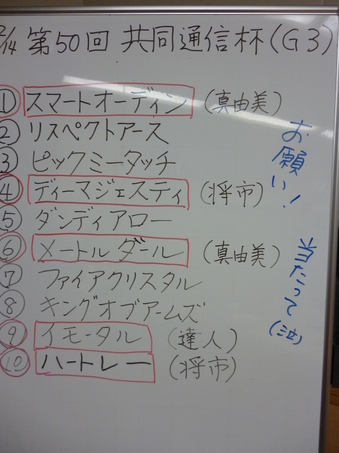 2/14 第50回 共同通信杯(G3)
① スマートオーディン (真由美)
② リスペクトアース
③ ピックミータッチ
④ ディーマジェスティ (将市)
⑤ ダンディアロー
⑥ メートルダール (真由美)
⑦ ファイアクリスタル
⑧ キングオブアームズ
⑨ イモータル (達人)
⑩ ハートレー (将市)
お願い!
当たって(泣)